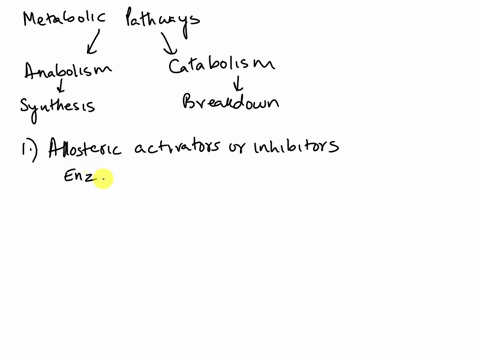 Metabolic Pathways
Anabolism Catabolism
Synthesis Breakdown
1.) Allosteric activators or inhibitors
Enz